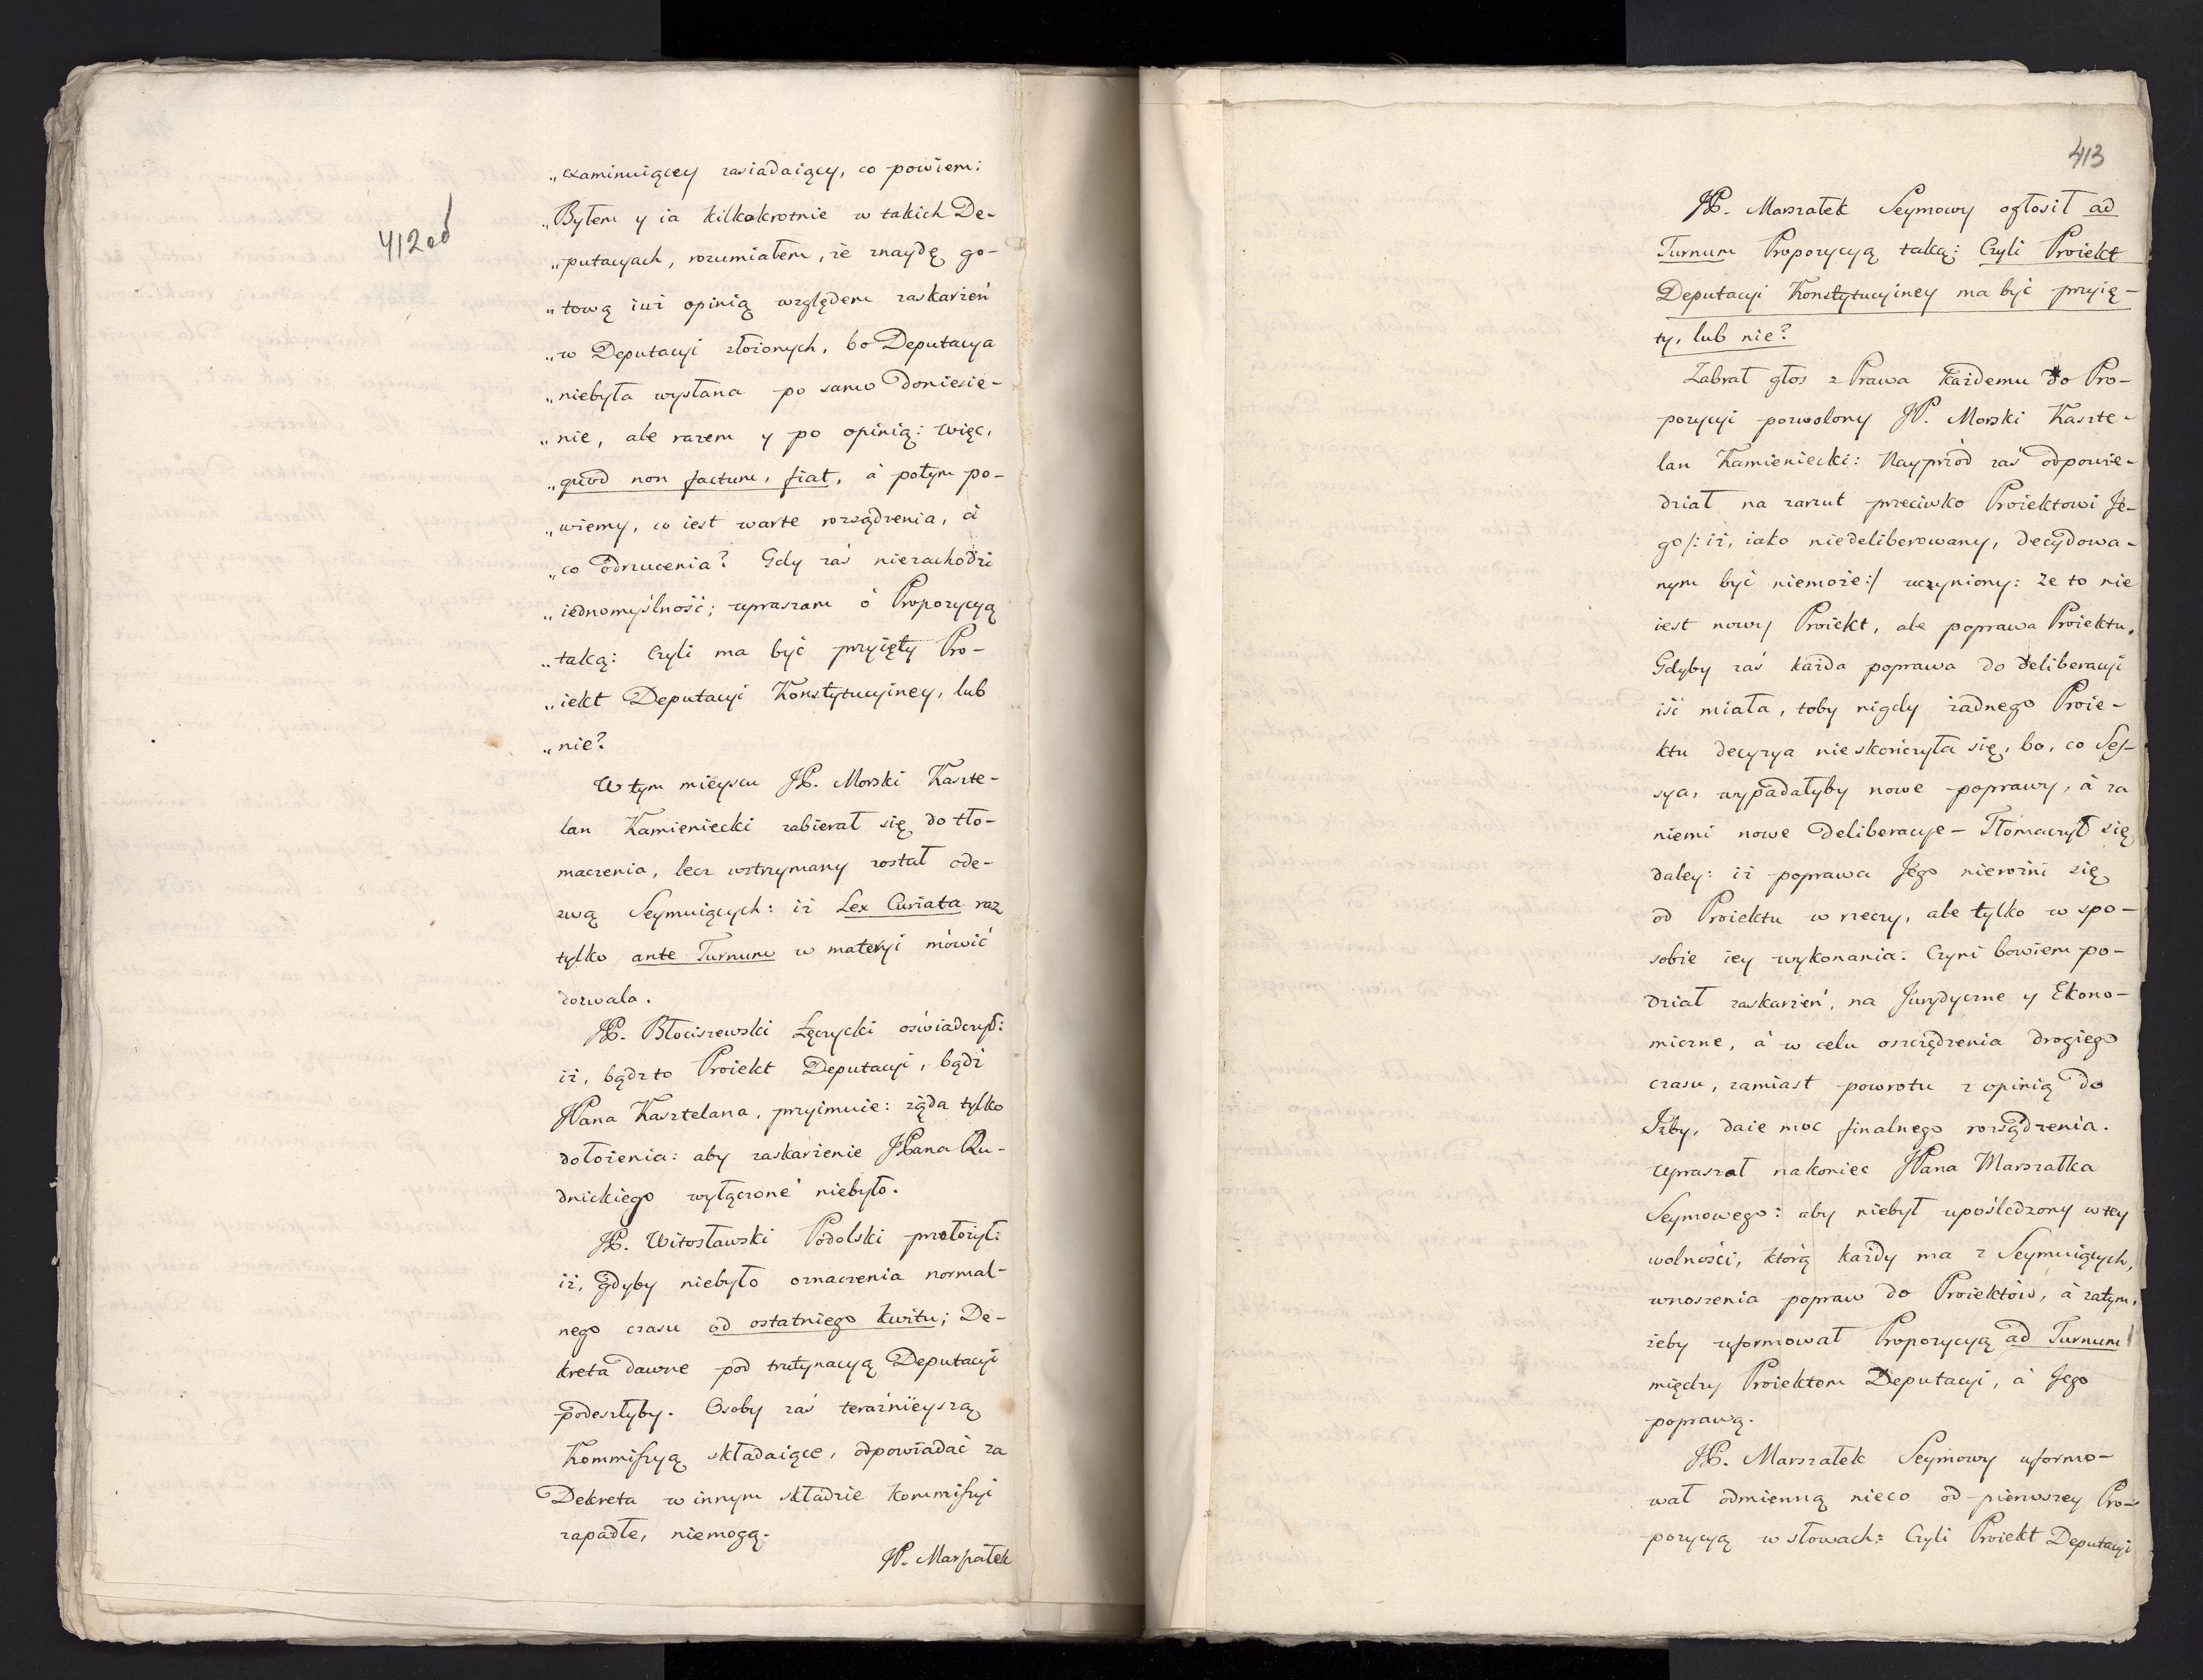 412od
„examinuiącey zasiadaiący, co powiem:
„Byłem y ia kilkakrotnie w takich De-
„putacyach, rozumiałem, że znaydę go-
„tową iuż opinią względem zaskarżeń
„w Deputacyi złożonych, bo Deputacya
„niebyła wysłana po samo doniesie-
„nie, ale razem y po opinią: więc,
„quod non factum, fiat, à potym po-
„wiemy, co iest warte rozsądzenia, à
„co odrzucenia? Gdy zaś niezachodzi
„iednomyślność; upraszam ó Propozycyą
„taką: Czyli ma być przyięty Pro-
„iekt Deputacyi Konstytucyiney, lub
„nie?
W tym mieyscu JP. Morski Kaszte-
lan Kamieniecki zabierał się do tło-
maczenia, lecz wstrzymany został ode-
zwą Seymuiących: iż Lex Curiata raz
tylko ante Turnum w materyi mówić
dozwala.
JP. Błociszewski Łęczycki oświadczył:
iż, bądz to Proiekt Deputacyi, bądź
JPana Kasztelana, przyimuie: żąda tylko
dołożenia: aby zaskarżenie JPana Ru-
dnickiego wyłączone niebyło.
JP. Witosławski Podolski przełożył:
iż, gdyby niebyło oznaczenia normal-
nego czasu od ostatniego kwitu; De-
kreta dawne pod trutynacyą Deputacyi
podeszłyby. Osoby zaś teraźnieyszą
Kommissyą składaiące, odpowiadać za
Dekreta w innym składzie Kommissyi
zapadłe, niemogą.
JP. Marszałek
413
JP. Marszałek Seymowy ogłosił ad
Turnum Propozycyą taką: Czyli Proiekt
Deputacyi Konstytucyiney ma być przyię-
ty, lub nie?
Zabrał głos z Prawa każdemu do Pro-
pozycyi pozwolony JP. Morski Kaszte-
lan Kamieniecki: Nayprzód zaś odpowie-
dział na zarzut przeciwko Proiektowi Je-
go /: iż, iako niedeliberowany, decydowa-
nym być niemoże :/ uczyniony: że to nie
iest nowy Proiekt, ale poprawa Proiektu,
Gdyby zaś każda poprawa do deliberacyi
iść miała, toby nigdy żadnego Proie-
ktu decyzya nieskończyła się, bo, co Ses-
sya, wypadałyby nowe poprawy, à za
niemi nowe deliberacye – Tłomaczył się
daley: iż poprawa Jego nierożni się
od Proiektu w rzeczy, ale tylko w spo-
sobie iey wykonania: Czyni bowiem po-
dział zaskarżeń, na Jurydyczne y Ekono-
miczne, à w celu oszczędzenia drogiego
czasu, zamiast powrotu z opinią do
Izby, daie moc finalnego rozsądzenia.
Upraszał nakoniec JPana Marszałka
Seymowego: aby niebył upośledzony w tey
wolności, ktorą każdy ma z Seymuiących,
wnoszenia popraw do Proiektów, à zatym,
żeby uformował Propozycyą ad Turnum
między Proiektem Deputacyi, à Jego
poprawą.
JP. Marszałek Seymowy uformo-
wał odmienną nieco od pierwszey Pro-
pozycyą w słowach: Czyli Proiekt Deputacyi